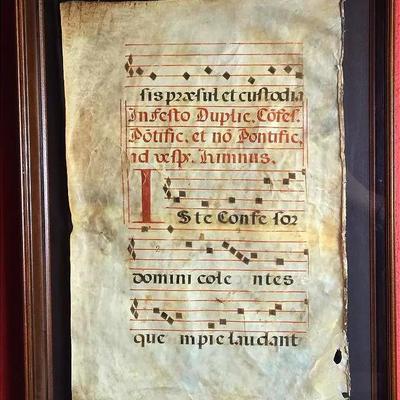 sis præsul et custodia
In Festo Duplic, Cõfes.
Põtific, et nõ Pontific,
ad vesp. himnus.
I Ste Confe sor
domini cole ntes
que mpie laudant